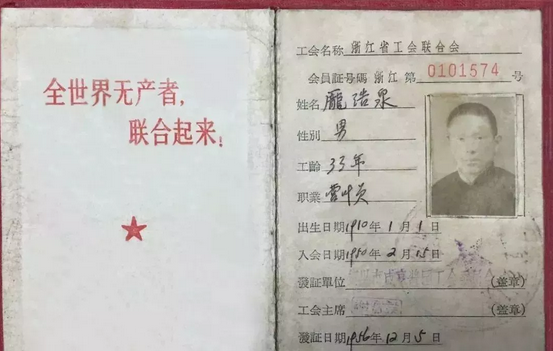 全世界无产者,
联合起来!
工会名称 浙江省工会联合会
会员証号碼 浙江 第 0101574 号
姓名 龐浩泉
性別 男
工齡 33年
职業 营业员
出生日期 1910年1月1日
入会日期 1950年2月15日
發証單位 (盖章)
工会主席 (盖章)
發証日期 1956年12月5日